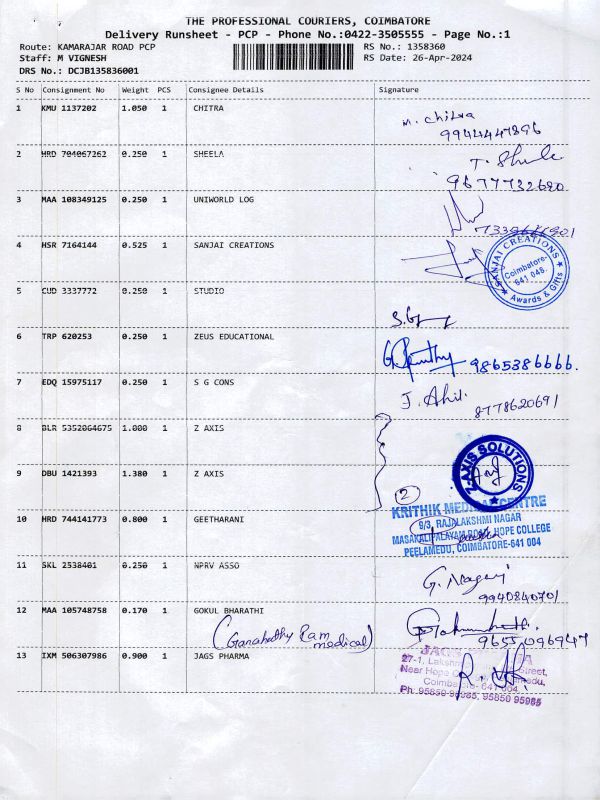 THE PROFESSIONAL COURIERS, COIMBATORE
Delivery Runsheet - PCP - Phone No.:0422-3505555 - Page No.:1
Route: KAMARAJAR ROAD PCP RS No.: 1358360
Staff: M VIGNESH RS Date: 26-Apr-2024
DRS No.: DCJB135836001
S No Consignment No Weight PCS Consignee Details Signature
1 KMU 1137202 1.050 1 CHITRA
M. Chitra
9944447896
2 HRD 704067262 0.250 1 SHEELA
T.
9677732680
3 MAA 108349125 0.250 1 UNIWORLD LOG
4 HSR 7164144 0.525 1 SANJAI CREATIONS
SANJAI CREATIONS
Coimbatore-
641 048.
Awards & Gifts
5 CUD 3337772 0.250 1 STUDIO
6 TRP 620253 0.250 1 ZEUS EDUCATIONAL
9865386666.
7 EDQ 15975117 0.250 1 S G CONS
J. Ahil.
8778620691
8 BLR 5352064675 1.000 1 Z AXIS
Z-AXIS SOLUTIONS
9 DBU 1421393 1.380 1 Z AXIS
2
10 HRD 744141773 0.800 1 GEETHARANI
KRITHIK MEDICAL CENTRE
9/3, RAJALAKSHMI NAGAR
MASAKALIPALAYAM ROAD, HOPE COLLEGE
PEELAMEDU, COIMBATORE-641 004
11 SKL 2538401 0.250 1 NPRV ASSO
G. Nagaraj
9940840701
12 MAA 105748758 0.170 1 GOKUL BHARATHI
(Ganahathy Ram
medical)
9655096947
13 IXM 506307986 0.900 1 JAGS PHARMA
27-1, Street,
Near Hope
Coimbatore- 641 004
Ph: 95850 95985